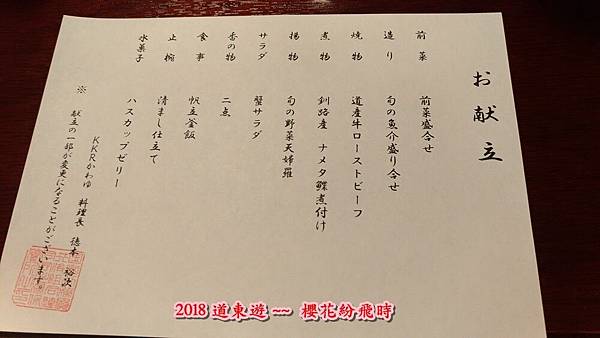 お献立
前菜　前菜盛合せ
造り　旬の魚介盛り合せ
焼物　道産牛ローストビーフ
煮物　釧路産　ナメタ鰈煮付け
揚物　旬の野菜天婦羅
サラダ　蟹サラダ
香の物　二点
食事　帆立釜飯
止椀　清まし仕立て
水菓子　ハスカップゼリー
KKRかわゆ　料理長　徳本　裕次
※　献立の一部が変更になることがございます。
2018 道東遊~~ 櫻花紛飛時